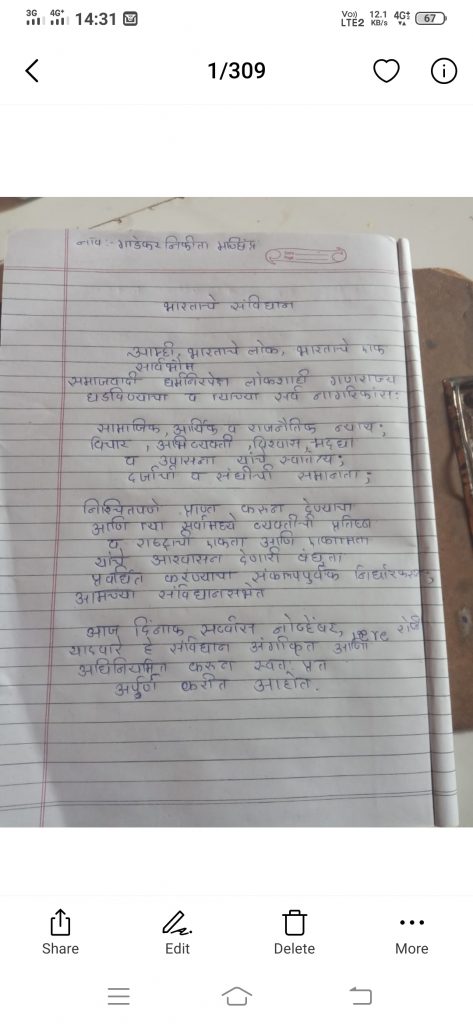 3G 4G+ 14:31 Vo)) LTE2 12.1 KB/s 4G+ 67
1/309
नाव:- गाडेकर निकीता मच्छिंद्र
भारताचे संविधान
आम्ही, भारताचे लोक, भारताचे एक
सार्वभौम
समाजवादी धर्मनिरपेक्ष लोकशाही गणराज्य
घडविण्याचा व त्याच्या सर्व नागरिकांस:
सामाजिक, आर्थिक व राजनैतिक न्याय;
विचार, अभिव्यक्ती, विश्वास, श्रद्धा
व उपासना यांचे स्वातंत्र्य;
दर्जाची व संधीची समानता;
निश्चितपणे प्राप्त करून देण्याचा
आणि त्या सर्वामध्ये व्यक्तीची प्रतिष्ठा
व राष्ट्राची एकता आणि एकात्मता
यांचे आश्वासन देणारी बंधुता
प्रवर्धित करण्याचा संकल्पपुर्वक निर्धार करून;
आमच्या संविधानसभेत
आज दिनांक सव्वीस नोव्हेंबर, १९४९ रोजी
याद्वारे हे संविधान अंगीकृत आणि
अधिनियमित करून स्वतः प्रत
अर्पुण करीत आहोत.
Share Edit Delete More